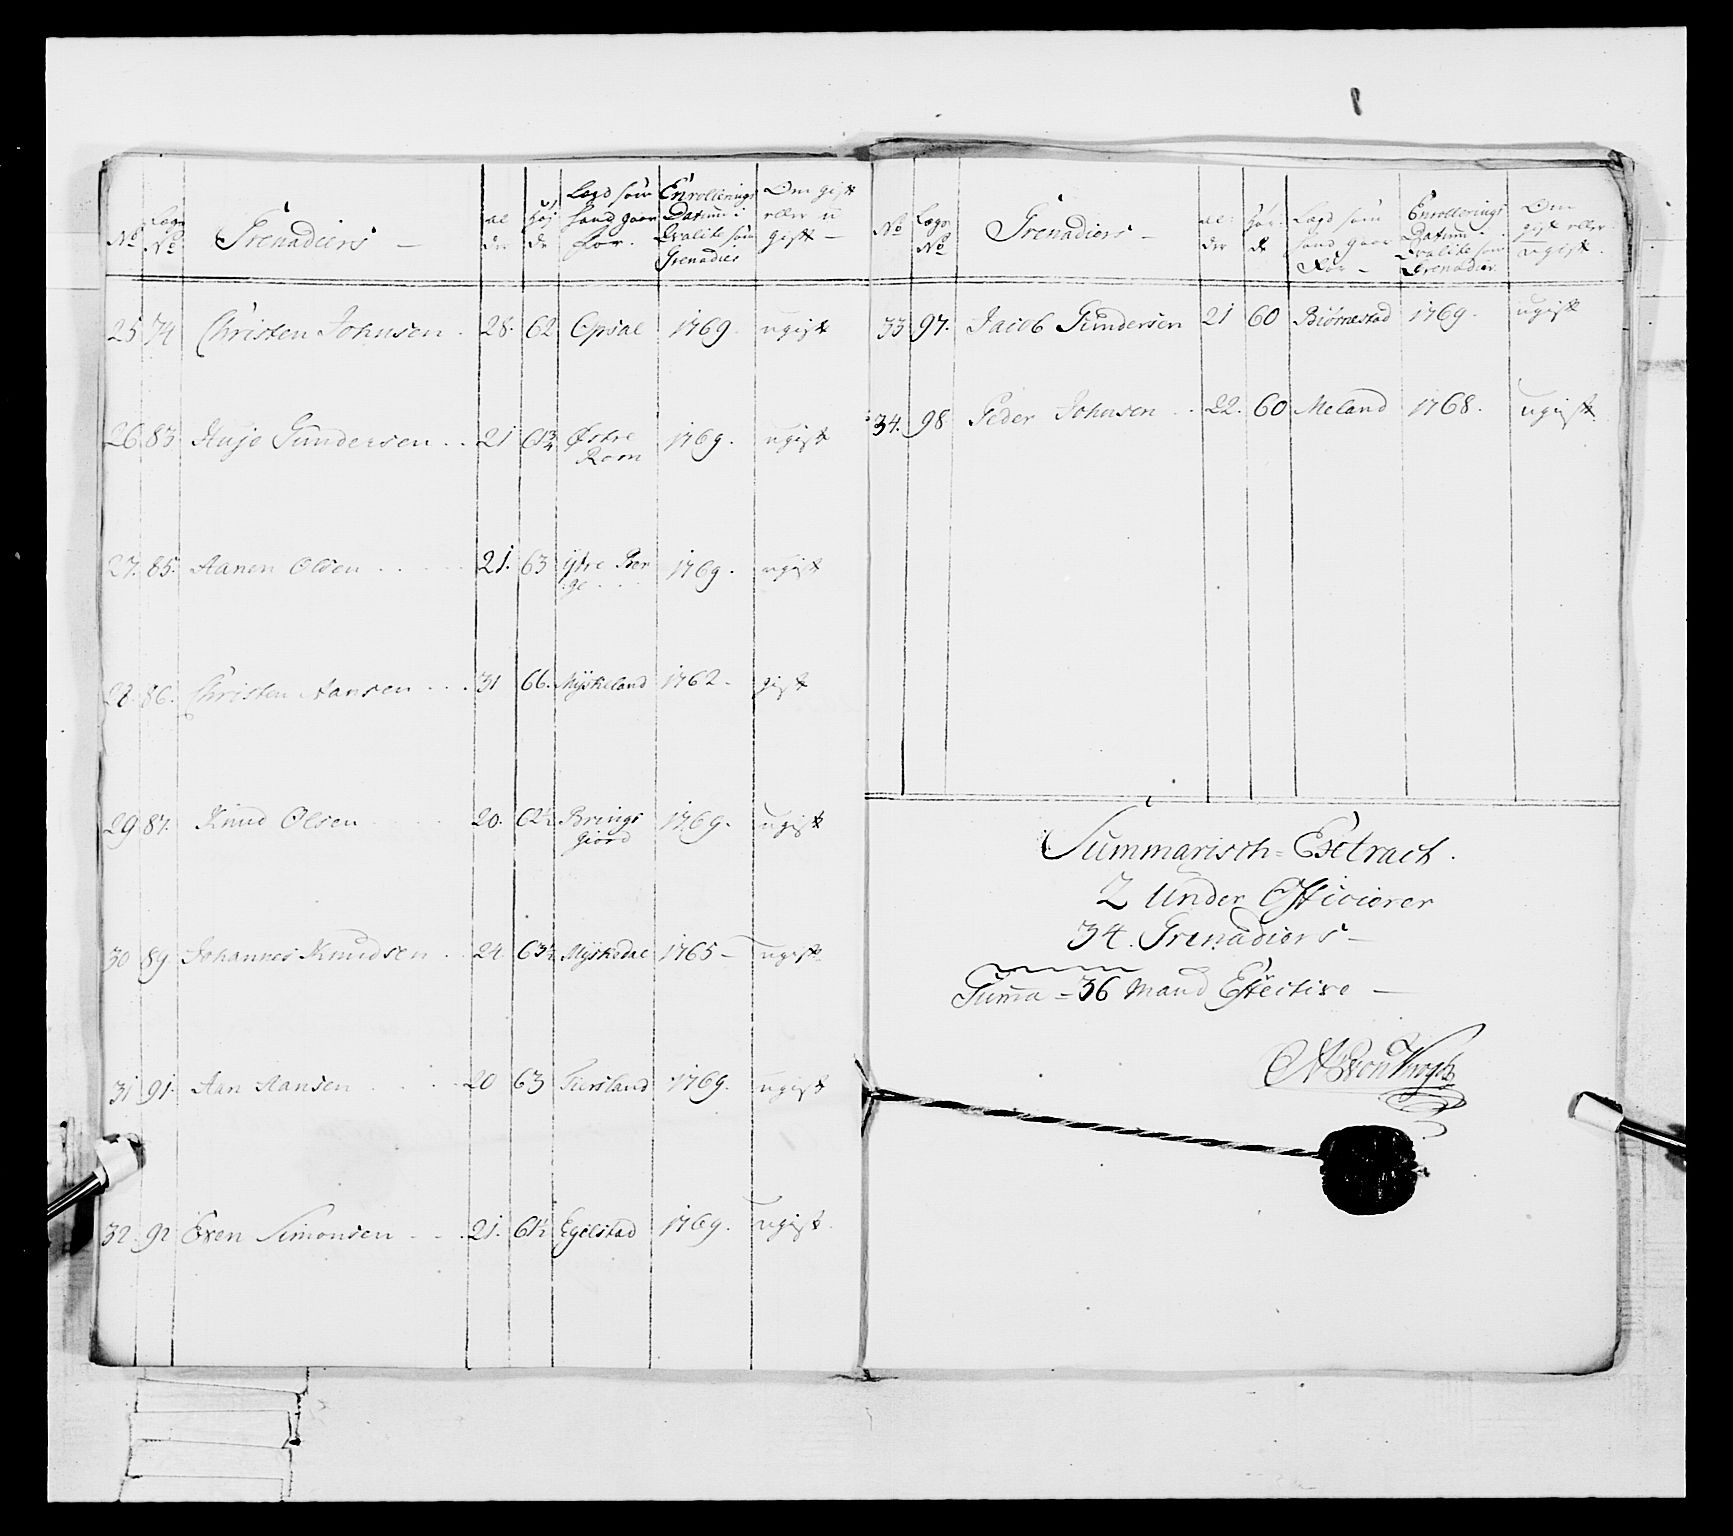 No Lægs No Grenadiers — al der Høj de Lægd som hand gaar for. Enrollerings Datum i Qvalite som Grenadier Om gift eller u gift —
25 74 Christen Johnsen. 28. 62 Opsal 1769. ugift
26 83 Gundersen . . 21 61¾ Østre Rom 1769. ugift
27. 85. Aanen Olsen . . . 21. 63 Ytre Ber ge . . 1769. ugift
28. 86. Christen Aansen . . . 31 66. Myskeland 1762. gift
29 87. Knud Olsen 20. 62½ Brings giord 1769. ugift
30 89 Johannes Knudsen . . 24. 63½ Myskedal 1765 — ugift
31 91. Aan Aansen . . . . 20 63 1769. ugift
32. 92 Even Simonsen . . . 21. 61½ Egelstad 1769. ugift.
No Lægs No Grenadiers — al: der Høi: de Lægd som hand gaar For — Enrollerings Datum i Qvalite som Grenadier Om gift eller ugift.
33 97. Jacob Gundersen 21 60 Biörnestad 1769. ugift
34. 98 Peder Johnsen . . 22. 60 Meland 1768. ugift
Summarisch = Extract.
2 Under Officierer
34. Grenadiers —
Suma = 36 Mand Effective —